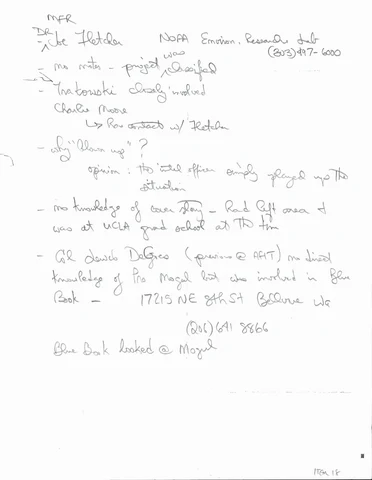 MFR
DR
- Joe Fletcher NOAA Environ. Research Lab
(303) 497-6000
- no notes - project was classified
- Trakowski closely involved
Charlie Moore
↳ Has contact w/ Fletcher
- why "blown up"?
opinion: the intel officer simply played up the
situation
- no knowledge of cover story - had left area &
was at UCLA grad school at the time
- Col DeGoes (previous @ AFIT) no direct
knowledge of Pro Mogul but was involved in Blue
Book - 17219 NE 8th St Bellevue Wa
(206) 641 8866
Blue Book looked @ Mogul